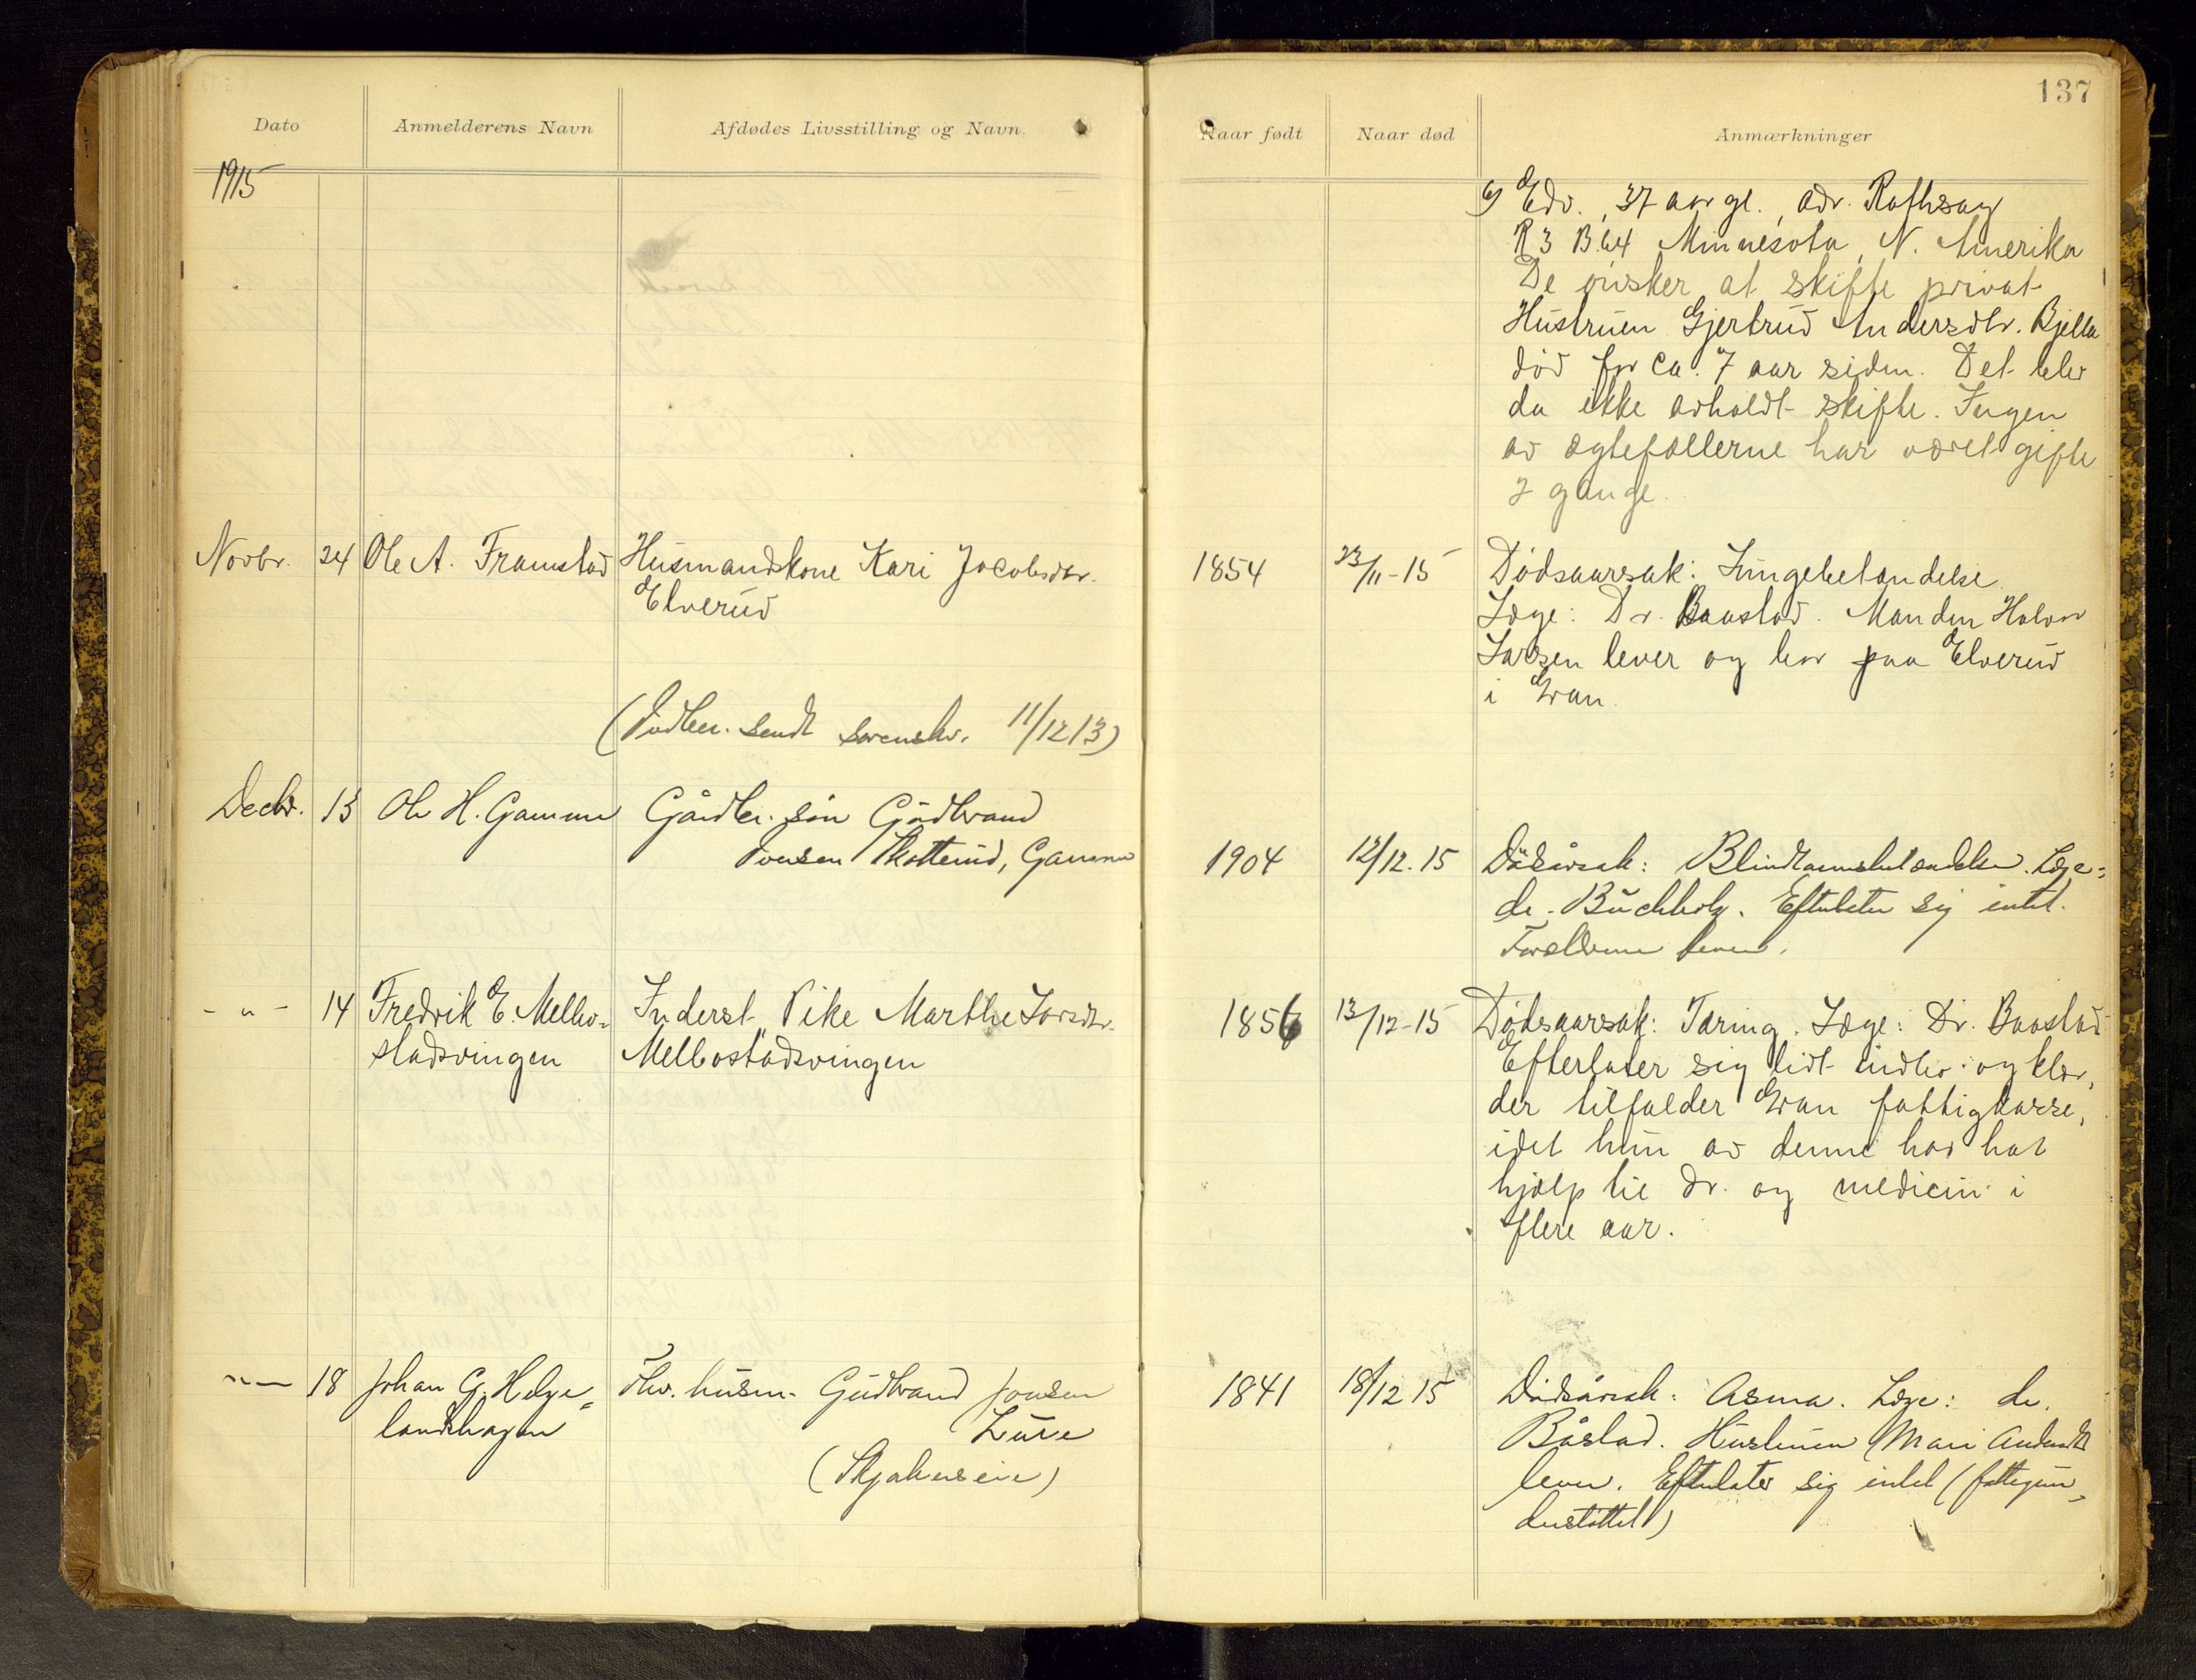 137
Dato
Anmelderens Navn
Afdødes Livsstilling og Navn
Naar født
Naar død
Anmærkninger
1915
6) Edv., 37 aar gl., adr. Rothsay
R 3 B.64 Minnesota, N. Amerika
De ønsker at skifte privat
Hustruen Gjertrud Andersdtr. Bjella
død for ca. 7 aar siden. Det blev
da ikke avholdt skifte. Ingen
av ægtefællerne har været gifte
2 gange.
Novbr. 24 Ole A. Framstad Husmandskone Kari Jacobsdtr. 1854 23/11-15 Dødsaarsak: Lungebetændelse.
Elverud Læge: Dr. Baastad. Manden Halvor
Larsen lever og bor paa Elverud
i Gran.
(Dødber. sendt sorenskr. 11/12 13)
Decbr. 13 Ole H. Gamme Gårdbr. søn Gudbrand
Iversen Skotterud, Gamme 1904 12/12.15 Dødsårsak: Blindtarmsbetændelse. Læge:
dr. Buchholz. Efterlater sig intet.
Forældrene lever.
- " - 14 Fredrik E. Melbo- Inderst, Pike Marthe Larsdtr. 1856 13/12-15 Dødsaarsak: Tæring. Læge: Dr. Baastad
stadsvingen Melbostadsvingen Efterlater sig lidt indbo og klær,
der tilfalder Gran fattigkasse,
idet hun av denne har hat
hjælp til dr. og medicin i
flere aar.
- " - 18 Johan G. Helge- Fhv. husm. Gudbrand Jonsen 1841 18/12 15 Dødsårsak: Asma. Læge: dr.
landshagen Lure Båstad. Hustruen Mari Andersdtr
(Skjakerseie) lever. Efterlater sig intet (fattigun-
derstøttet)